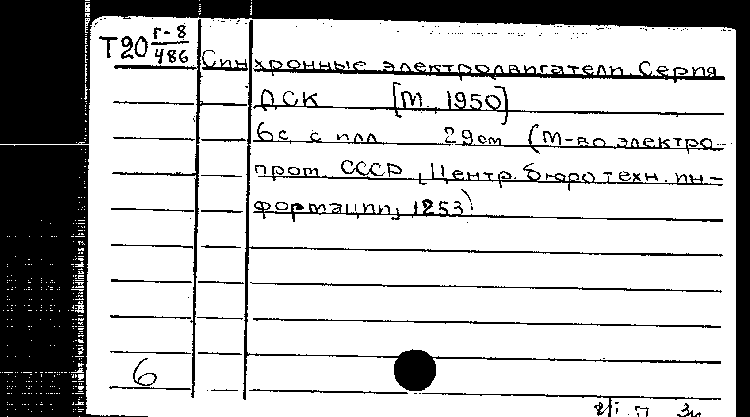 Т20 г-8
486
Синхронные электродвигатели. Серия
ДСК [М., 1950]
6с. с илл. 29см (М-во электро-
пром. СССР, Центр. бюро техн. ин-
формации, 1253)
6